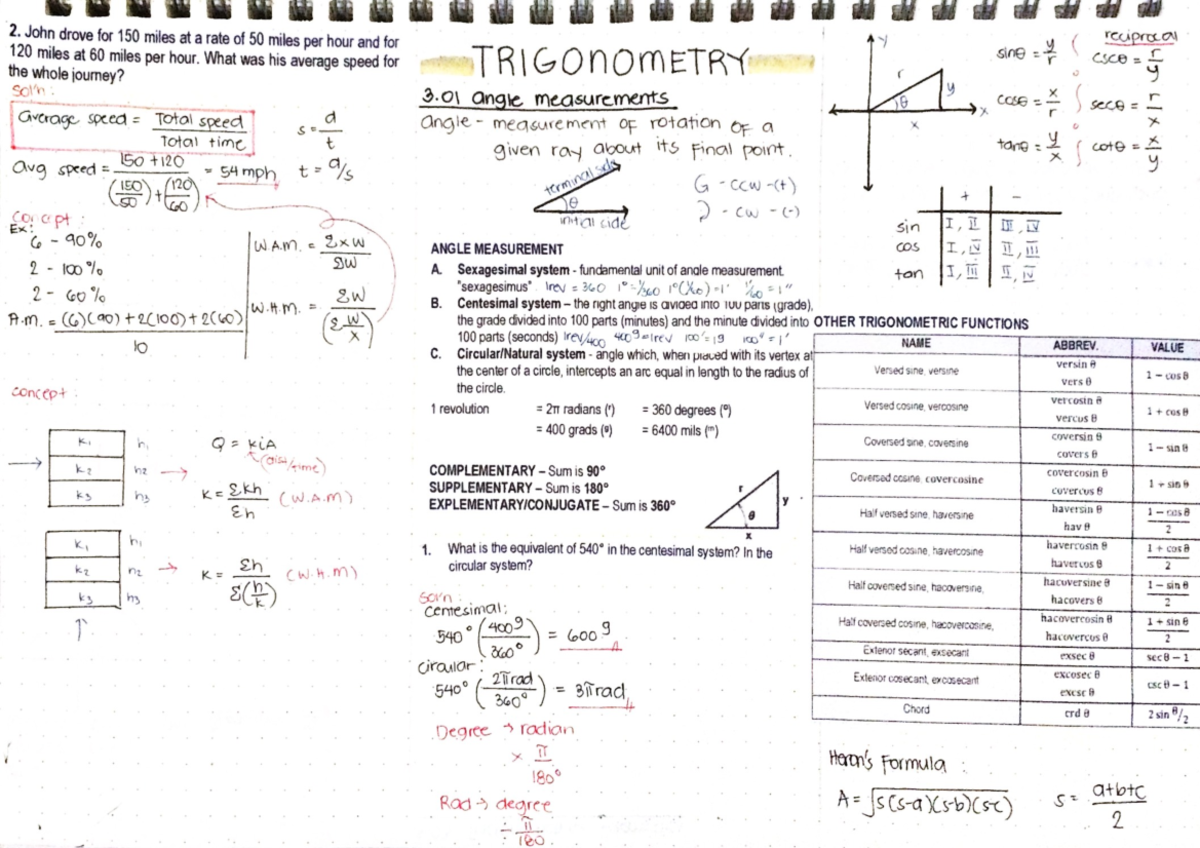 2. John drove for 150 miles at a rate of 50 miles per hour and for
120 miles at 60 miles per hour. What was his average speed for
the whole journey?
Sol'n:
average speed = Total speed / Total time
s = d/t
avg speed = 150 + 120 / (150/50) + (120/60) = 54 mph
t = d/s
concept:
Ex:
6 - 90%
2 - 100%
2 - 60%
A.M. = (6)(90) + 2(100) + 2(60) / 10
W.A.M. = Σxw / Σw
W.H.M. = Σw / (Σ w/x)
concept:
k1 h1
k2 h2
k3 h3
Q = kiA
(dist/time)
K = Σkh / Σh (W.A.M)
k1 h1
k2 h2
k3 h3
K = Σh / Σ(h/k) (W.H.M)
TRIGONOMETRY
3.01 angle measurements
angle - measurement of rotation of a
given ray about its final point.
terminal side
θ
initial side
G - CCW - (+)
- CW - (-)
ANGLE MEASUREMENT
A. Sexagesimal system - fundamental unit of angle measurement.
"sexagesimus" 1rev = 360 1° = 1/360 1°(1/60) = 1' 1/60 = 1"
B. Centesimal system – the right angle is divided into 100 parts (grade),
the grade divided into 100 parts (minutes) and the minute divided into
100 parts (seconds) 1rev/400 400g = 1rev 100' = 1g 100" = 1'
C. Circular/Natural system - angle which, when placed with its vertex at
the center of a circle, intercepts an arc equal in length to the radius of
the circle.
1 revolution = 2π radians (r) = 360 degrees (o)
= 400 grads (g) = 6400 mils (m)
COMPLEMENTARY – Sum is 90°
SUPPLEMENTARY – Sum is 180°
EXPLEMENTARY/CONJUGATE – Sum is 360°
r
y
θ
x
1. What is the equivalent of 540° in the centesimal system? In the
circular system?
Sol'n:
centesimal:
540° (400g / 360°) = 600g
circular:
540° (2π rad / 360°) = 3π rad
Degree → radian
× π / 180°
Rad → degree
÷ π / 180
y
r
y
θ
x
x
reciprocal
sinθ = y/r cscθ = r/y
cosθ = x/r secθ = r/x
tanθ = y/x cotθ = x/y
+ -
sin I, II III, IV
cos I, IV II, III
tan I, III II, IV
OTHER TRIGONOMETRIC FUNCTIONS
NAME ABBREV. VALUE
Versed sine, versine versin θ vers θ 1 − cos θ
Versed cosine, vercosine vercosin θ vercus θ 1 + cos θ
Coversed sine, coversine coversin θ covers θ 1 − sin θ
Coversed cosine, covercosine covercosin θ covercus θ 1 + sin θ
Half versed sine, haversine haversin θ hav θ 1 − cos θ / 2
Half versed cosine, havercosine havercosin θ havercus θ 1 + cos θ / 2
Half coversed sine, hacoversine, hacoversine θ hacovers θ 1 − sin θ / 2
Half coversed cosine, hacovercosine, hacovercosin θ hacovercus θ 1 + sin θ / 2
Exterior secant, exsecant exsec θ sec θ − 1
Exterior cosecant, excosecant excosec θ excsc θ csc θ − 1
Chord crd θ 2 sin θ/2
Heron's Formula:
A = √s(s-a)(s-b)(s-c) s = a+b+c / 2